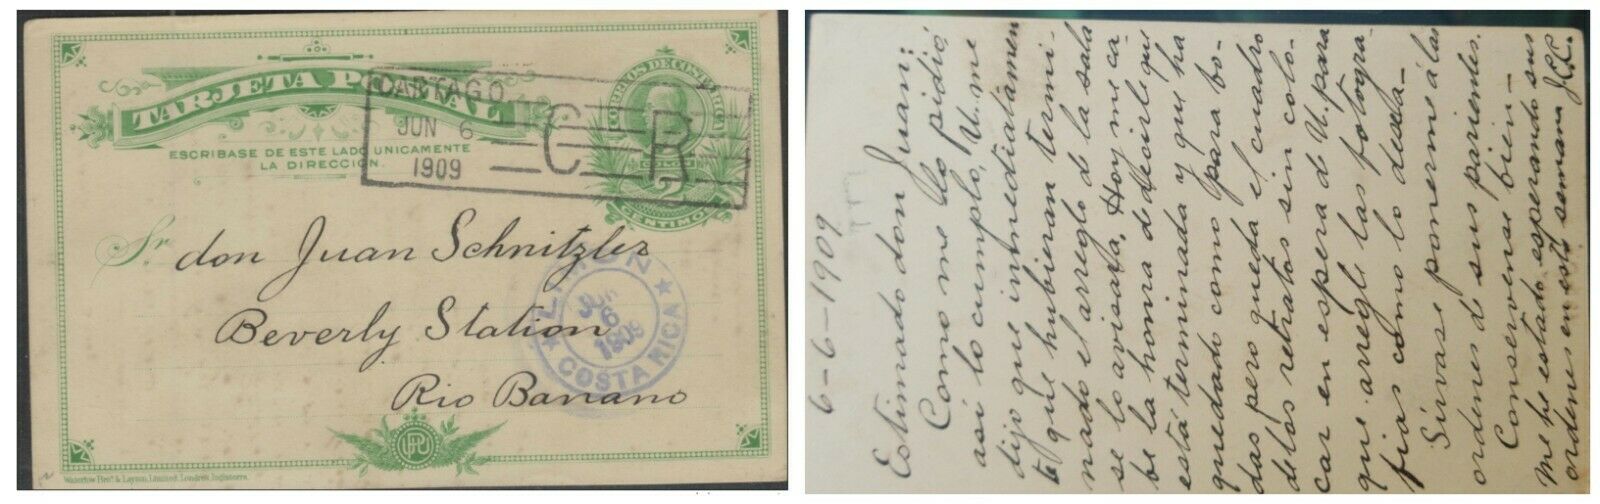 TARJETA POSTAL
CORREOS DE COSTA RICA
ESCRIBASE DE ESTE LADO UNICAMENTE
LA DIRECCION.
COLON
2
CENTIMOS
CARTAGO
JUN 6
1909
C R
Sr. don Juan Schnitzler
Beverly Station
Rio Banano
LIMON
JUN
6
1909
COSTA RICA
Waterlow Bros. & Layton, Limited, Londres, Inglaterra.
6-6-1909
Estimado don Juan:
Como me lo pidió
así lo cumplo, U. me
dijo que inmediatamen
te que hubieran termi-
nado el arreglo de la sala
se lo avisara, Hoy me ca-
be la honra de decirle que
está terminada y que ha
quedado como para bo-
das pero queda el cuadro
de los retratos sin colo-
car en espera de U. para
que arregle las fotogra-
fías como lo desea-
Sírvase ponerme á las
ordenes de sus parientes.
Conservense bien-
me he estado esperando sus
ordenes en esta semana